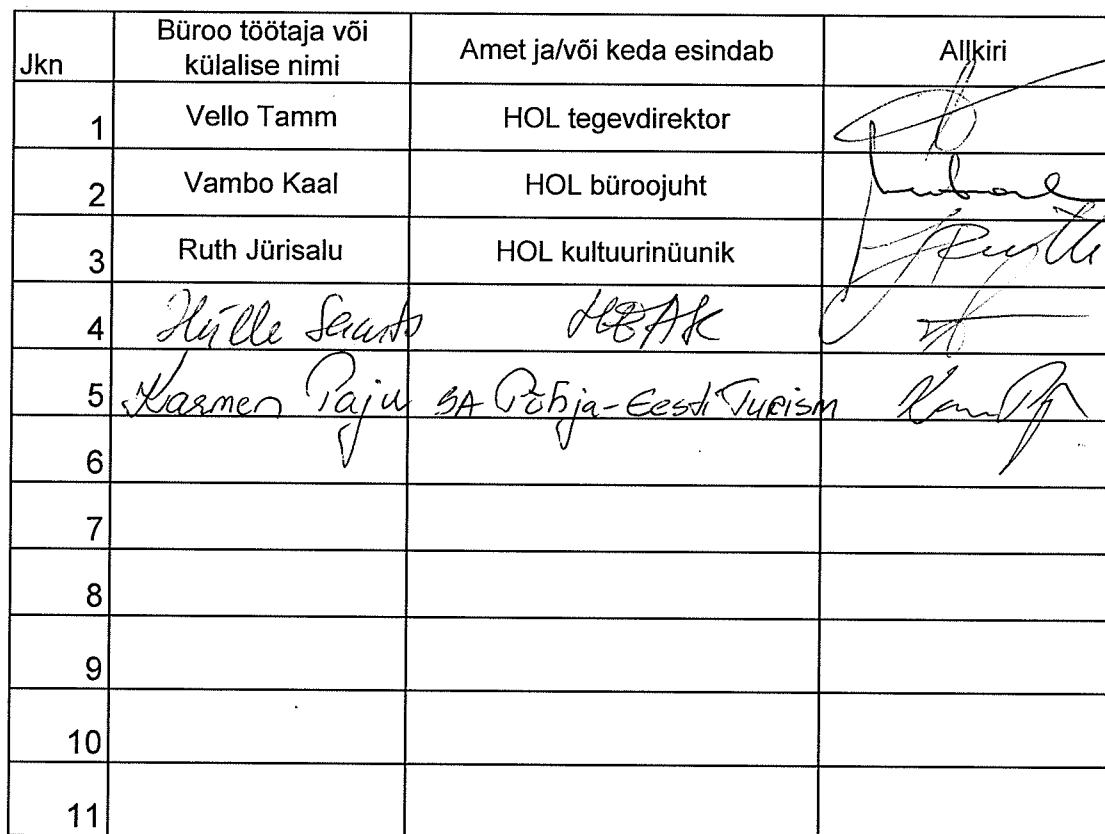 Jkn Büroo töötaja või külalise nimi Amet ja/või keda esindab Allkiri
1 Vello Tamm HOL tegevdirektor
2 Vambo Kaal HOL büroojuht
3 Ruth Jürisalu HOL kultuurinüunik
4 Hülle
5 Karmen Paju SA Põhja-Eesti Turism
6
7
8
9
10
11